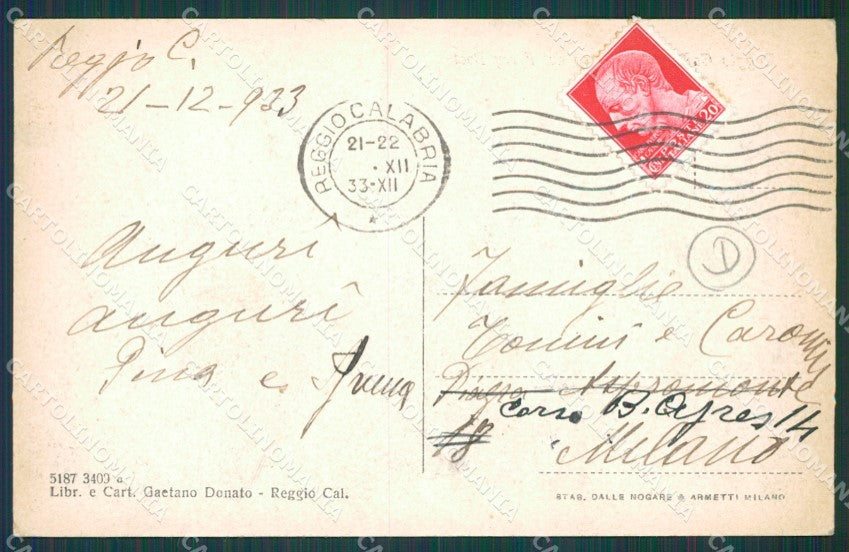 Reggio C.
21-12-933
REGGIO CALABRIA
21-22
. XII
33-XII
20
Auguri
auguri
Pina e
Famiglie
Tonini e Caronni
Piazza Aspromonte
18
corso B. Ayres 14
Milano
D
5187 3400
Libr. e Cart. Gaetano Donato - Reggio Cal.
STAB. DALLE NOGARE & ARMETTI MILANO
CARTOLINOMANIA